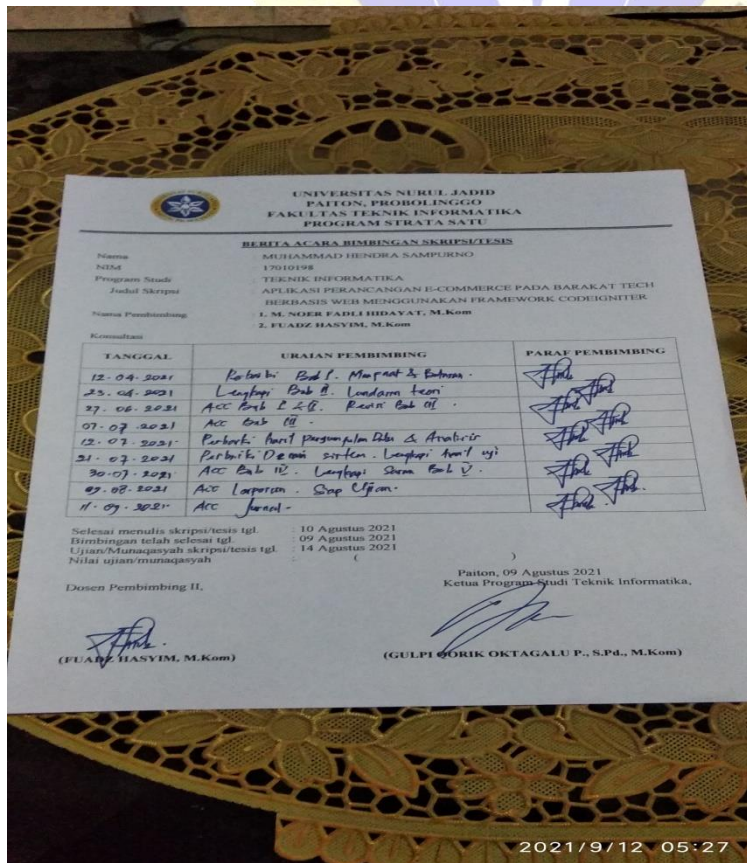 UNIVERSITAS NURUL JADID
PAITON, PROBOLINGGO
FAKULTAS TEKNIK INFORMATIKA
PROGRAM STRATA SATU
BERITA ACARA BIMBINGAN SKRIPSI/TESIS
Nama : MUHAMMAD HENDRA SAMPURNO
NIM : 17010198
Program Studi : TEKNIK INFORMATIKA
Judul Skripsi : APLIKASI PERANCANGAN E-COMMERCE PADA BARAKAT TECH
BERBASIS WEB MENGGUNAKAN FRAMEWORK CODEIGNITER
Nama Pembimbing : 1. M. NOER FADLI HIDAYAT, M.Kom
2. FUADZ HASYIM, M.Kom
Konsultasi
TANGGAL URAIAN PEMBIMBING PARAF PEMBIMBING
12-04-2021 Bab I. &
23-04-2021 Lengkapi Bab II. Landasan teori
27-06-2021 Acc Bab I & II. Revisi Bab III.
07-07-2021 Acc Bab III.
12-07-2021 hasil pengumpulan Data &
21-07-2021 sistem. Lengkapi hasil uji
30-07-2021 Acc Bab IV. Lengkapi Bab V.
09-08-2021 Acc Laporan. Siap Ujian.
11-09-2021 Acc Jurnal.
Selesai menulis skripsi/tesis tgl. : 10 Agustus 2021
Bimbingan telah selesai tgl. : 09 Agustus 2021
Ujian/Munaqasyah skripsi/tesis tgl. : 14 Agustus 2021
Nilai ujian/munaqasyah : ( )
Paiton, 09 Agustus 2021
Dosen Pembimbing II, Ketua Program Studi Teknik Informatika,
(FUADZ HASYIM, M.Kom) (GULPI QORIK OKTAGALU P., S.Pd., M.Kom)
2021/9/12 05:27